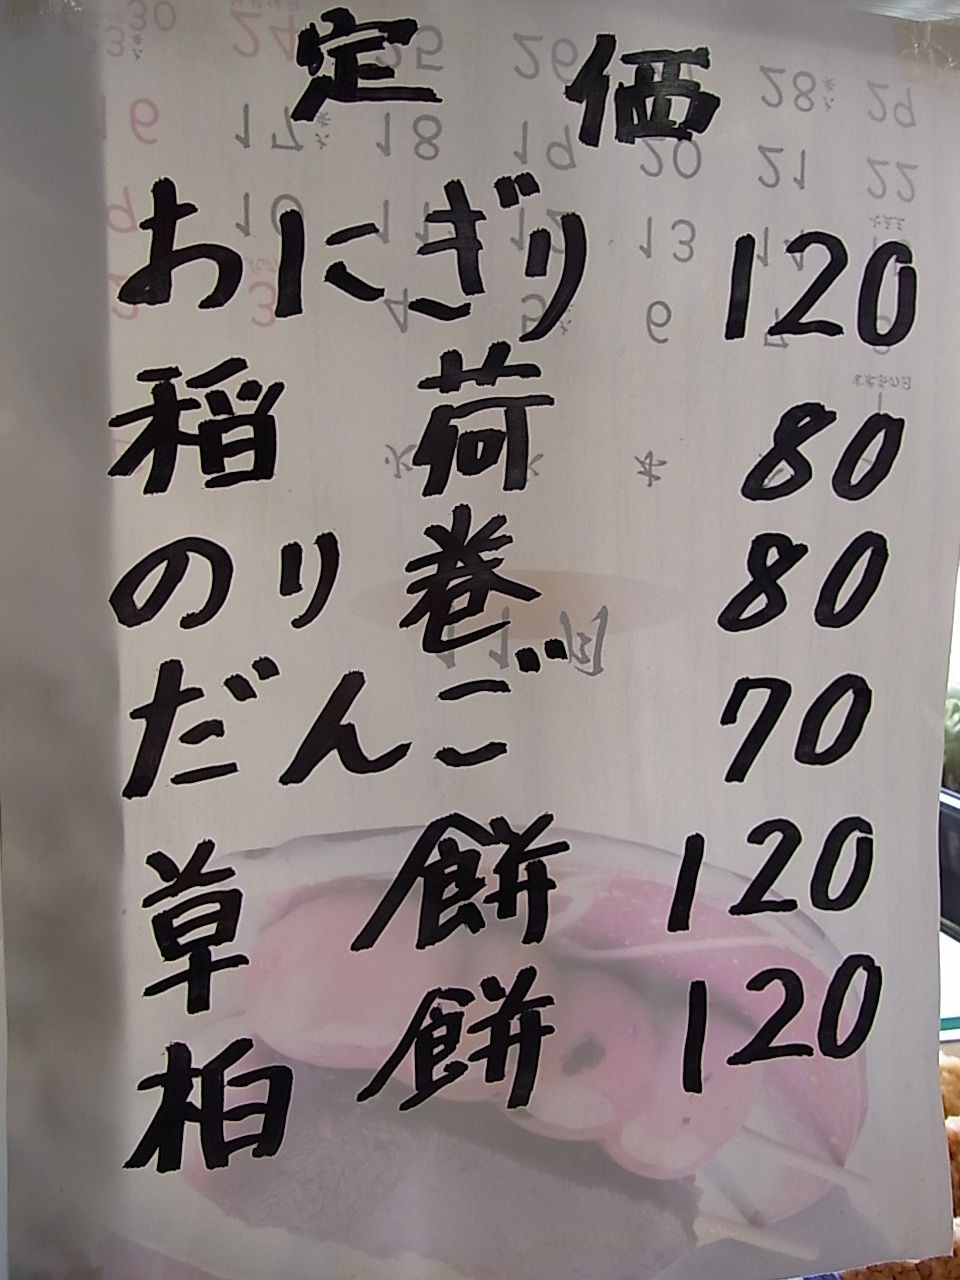 定価
おにぎり 120
稲荷 80
のり巻 80
だんご 70
草餅 120
柏餅 120